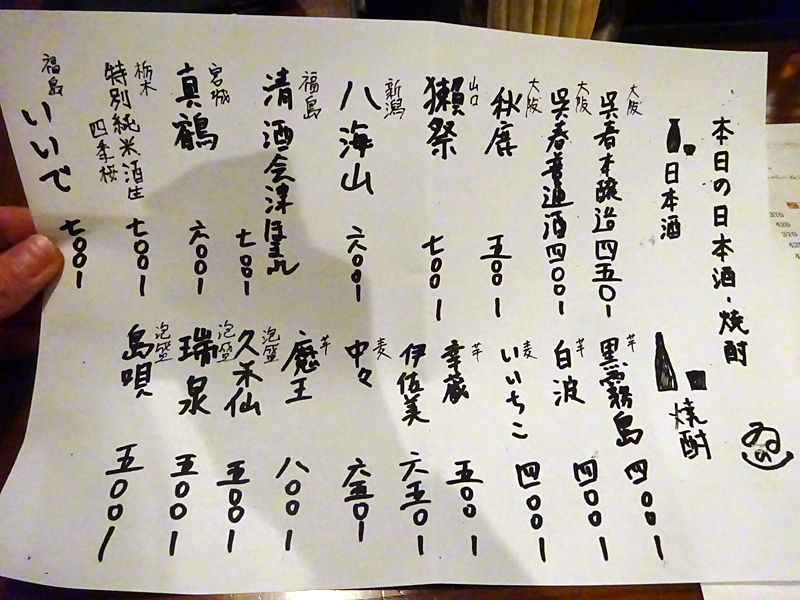 本日の日本酒・焼酎
日本酒
大阪 呉春本醸造 四五〇ー
大阪 呉春普通酒 四〇〇ー
大阪 秋鹿 五〇〇ー
山口 獺祭 七〇〇ー
新潟 八海山 六〇〇ー
福島 清酒会津ほまれ 七〇〇ー
宮城 真鶴 六〇〇ー
栃木 特別純米酒生 四季桜 七〇〇ー
福島 いいで 七〇〇ー
焼酎
芋 黒霧島 四〇〇ー
芋 白波 四〇〇ー
麦 いいちこ 四〇〇ー
芋 幸蔵 五〇〇ー
伊佐美 六五〇ー
麦 中々 六五〇ー
芋 魔王 八〇〇ー
泡盛 久米仙 五〇〇ー
泡盛 瑞泉 五〇〇ー
泡盛 島唄 五〇〇ー